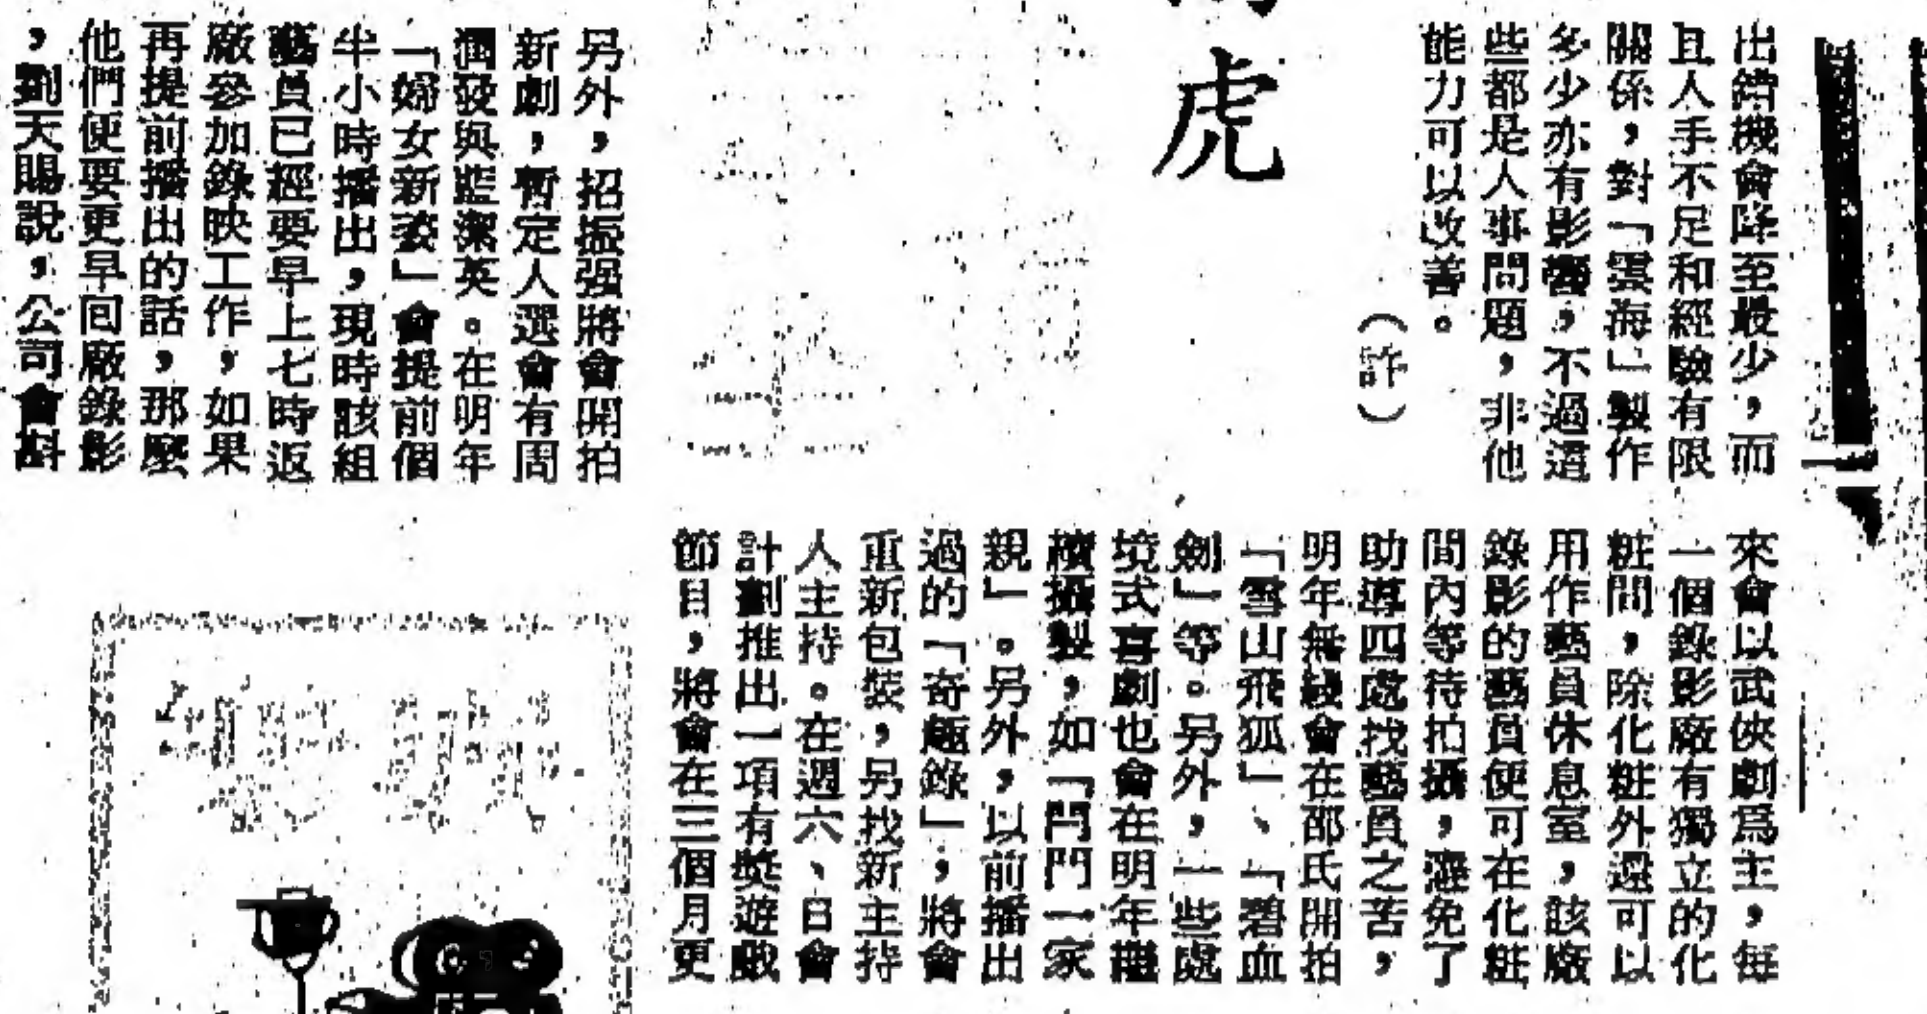 虎
出錯機會降至最少，而
且人手不足和經驗有限
關係，對「雲海」製作
多少亦有影響，不過這
些都是人事問題，非他
能力可以改善。
（許）
來會以武俠劇爲主，每
一個錄影廠有獨立的化
粧間，除化粧外還可以
用作藝員休息室，該廠
錄影的藝員便可在化粧
間內等待拍攝，避免了
助導四處找藝員之苦，
明年無綫會在邵氏開拍
「雪山飛狐」、「碧血
劍」等。另外，一些處
境式喜劇也會在明年繼
續攝製，如「鬥鬥一家
親」。另外，以前播出
過的「奇趣錄」，將會
重新包裝，另找新主持
人主持。在週六、日會
計劃推出一項有獎遊戲
節目，將會在三個月更
另外，招振强將會開拍
新劇，暫定人選會有周
潤發與藍潔英。在明年
「婦女新姿」會提前個
半小時播出，現時該組
藝員已經要早上七時返
廠參加錄映工作，如果
再提前播出的話，那麼
他們便要更早回廠錄影
，劉天賜說，公司會斟